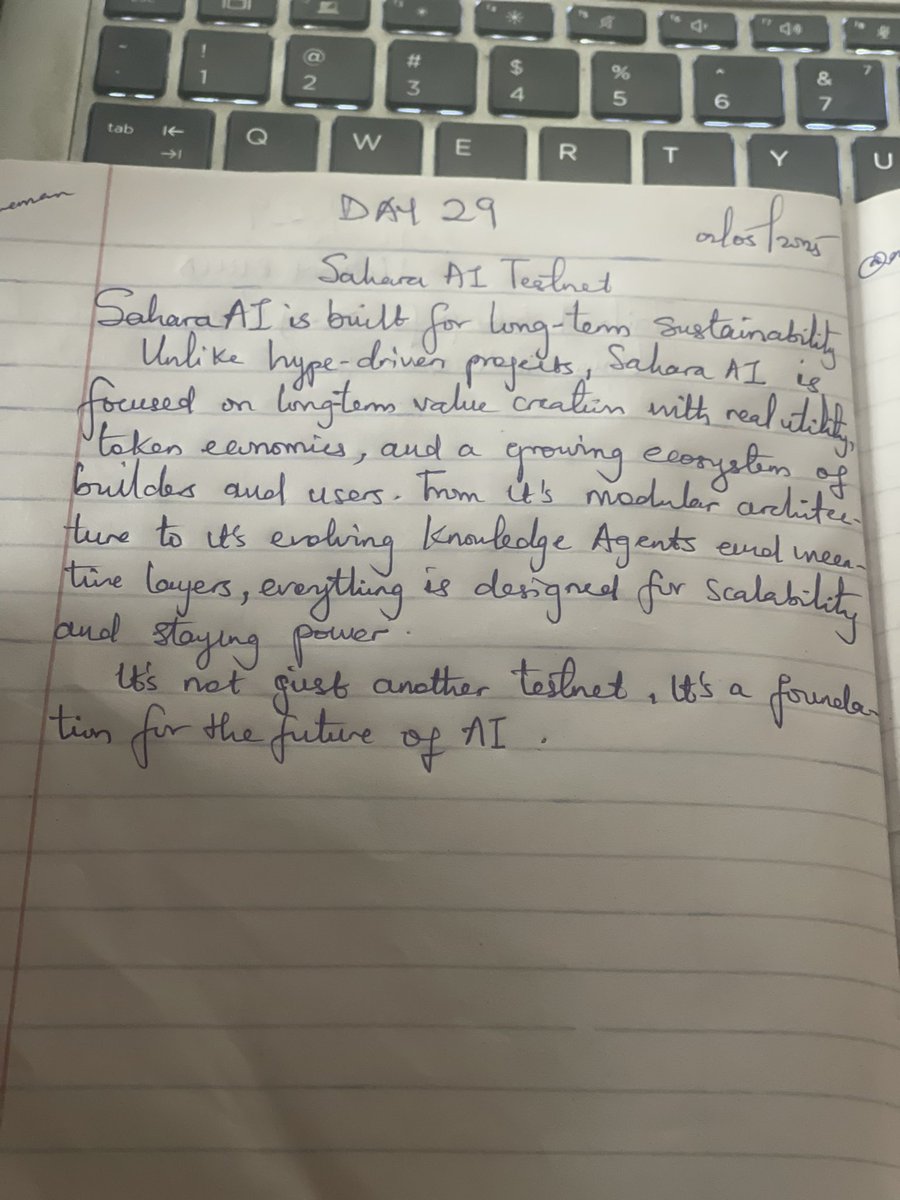 ! @ # $ % ^ & 7
1 2 3 4 5 6 7
tab Q W E R T Y U
eman
DAY 29
02/05/2025
Sahara AI Testnet
Sahara AI is built for long-term sustainability
Unlike hype-driven projects, Sahara AI is
focused on long-term value creation with real utility,
token economics, and a growing ecosystem of
builders and users. From it's modular architec-
ture to it's evolving Knowledge Agents and incen-
tive layers, everything is designed for scalability
and staying power.
It's not just another testnet, It's a founda-
tion for the future of AI.